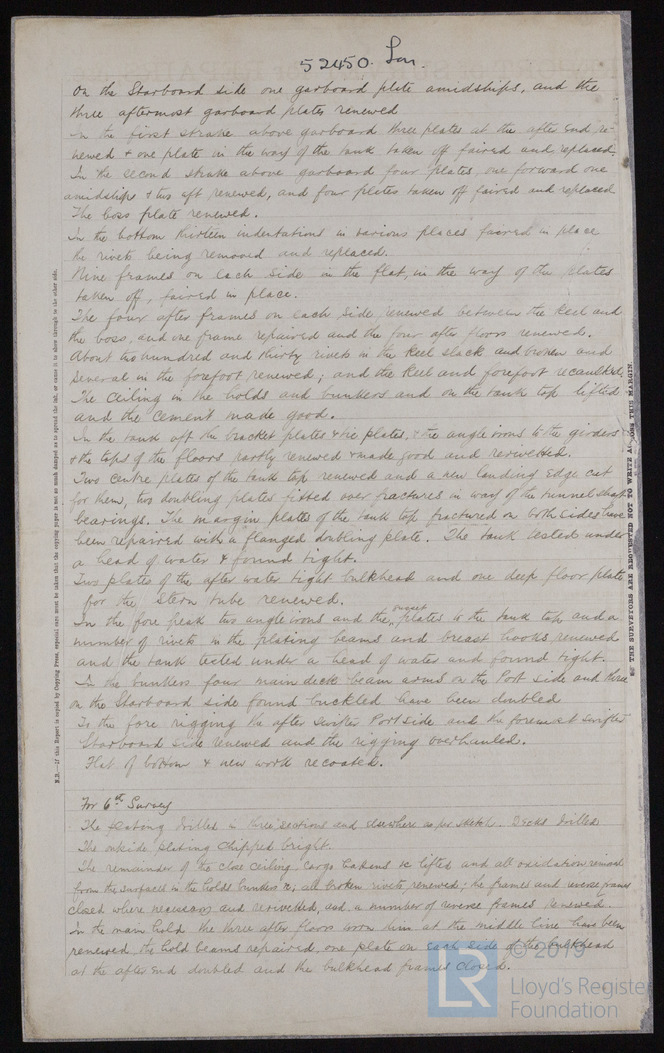 52450. Lon.
On the Starboard side one garboard plate amidships, and the
three aftermost garboard plates renewed
In the first strake above garboard three plates at the after end re-
newed & one plate in the way of the tank taken off faired and replaced.
In the second strake above garboard four plates one forward one
amidships & two aft renewed, and four plates taken off faired and replaced
The boss plate renewed.
In the bottom thirteen indentations in various places faired in place
the rivets being removed and replaced.
Nine frames on each side in the flat, in the way of the plates
taken off, faired in place.
The four after frames on each side renewed between the keel and
the boss, and one frame repaired and the four after floors renewed.
About two hundred and thirty rivets in the keel slack and broken and
several in the forefoot renewed; and the keel and forefoot recaulked.
The ceiling in the holds and bunkers and on the tank top lifted
and the cement made good.
In the tank aft the bracket plates & tie plates, & the angle irons to the girders
& the tops of the floors partly renewed & made good and rerivetted.
Two centre plates of the tank top renewed and a new landing edge cut
for them, two doubling plates fitted over fractures in way of the tunnel shaft
bearings. The margin plates of the tank top fractured on both sides have
been repaired with a flanged doubling plate. The tank tested under
a head of water & found tight.
Two plates of the after water tight bulkhead and one deep floor plate
for the stern tube renewed.
In the fore peak two angle irons and the gusset plates to the tank top and a
number of rivets in the plating beams and breast hooks renewed
and the tank tested under a head of water and found tight.
In the bunkers four main deck beam arms on the Port side and three
on the Starboard side found buckled have been doubled
To the fore rigging the after swifter Port side and the foremost swifter
Starboard side renewed and the rigging overhauled.
Flat of bottom & new work recoated.
For 6th Survey
The plating drilled in three sections and elsewhere as per sketch. Decks drilled
The outside plating chipped bright.
The remainder of the close ceiling cargo battens &c lifted and all oxidation removed
from the surfaces in the holds bunkers &c; all broken rivets renewed; the frames and reverse frames
closed where necessary and rerivetted, and a number of reverse frames renewed.
In the main hold the three after floors worn thin at the middle line have been
renewed, the hold beams repaired, one plate on each side of the bulkhead
at the after end doubled and the bulkhead frames closed.
N.B.—If this Report is copied by Copying Press, especial care must be taken that the copying paper is not so much damped as to spread the ink, or cause it to show through to the other side.
THE SURVEYORS ARE REQUESTED NOT TO WRITE ACROSS THIS MARGIN.
© 2019
LR
Lloyd's Register
Foundation